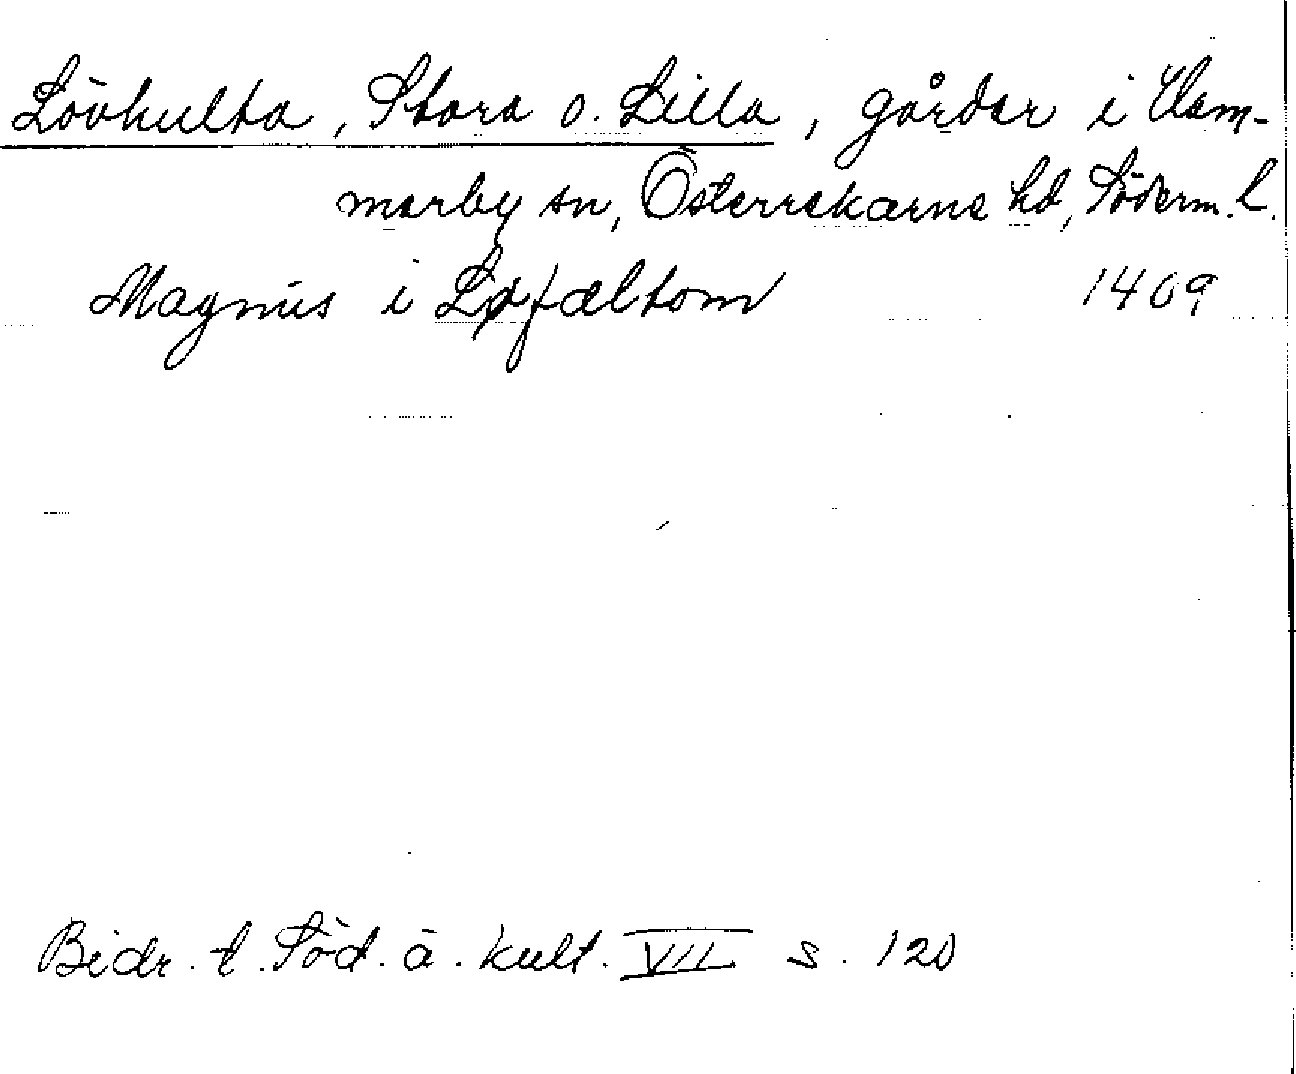 Lövhulta, Stora o. Lilla, gårdar i Ham-
marby sn, Österrekarne hd, Söderm. l.
Magnus i Løfæltom 1409
Bidr. t. Söd. ä. kult. VII s. 120